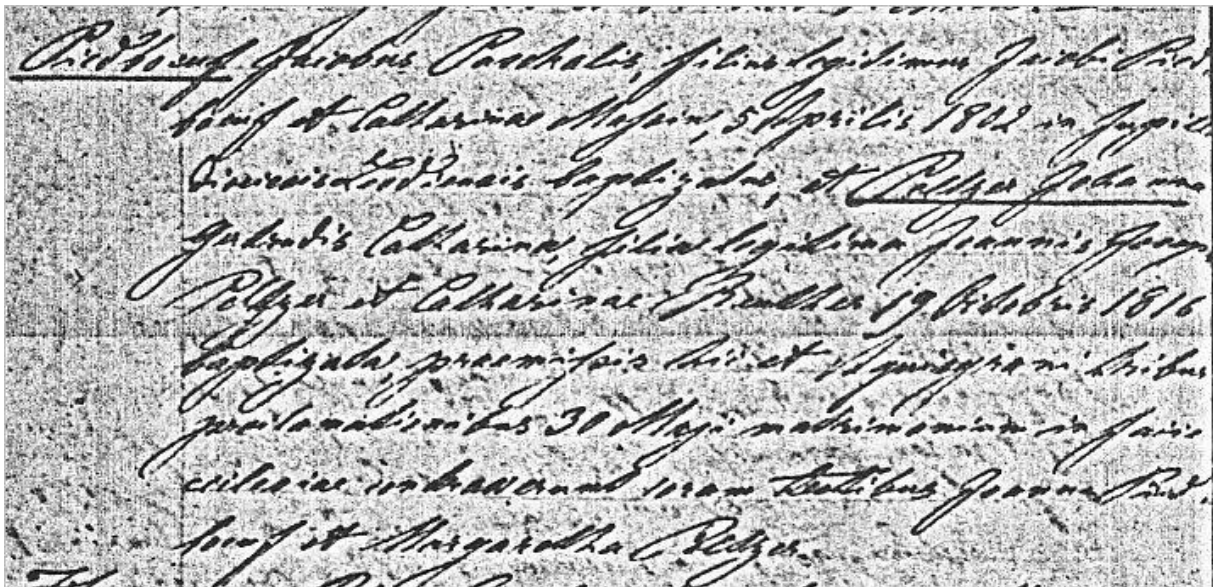 Piedboeuf Jacobus Paschalis, filius legitimus Jacobi Pied,
boeuf et Catharinae Massin, 5 Aprilis 1802 in Jupille
dioicesis Leodiensis baptizatus, et Peltzer Johanna
Gertrudis Catharina, filia legitima Joannis Joseph
Peltzer et Catharinae 19 Octobris 1816
baptizata, praemissis hic et Aquisgrani tribus
proclamationibus 30 Maji matrimonium in facie
ecclesiae contraxerunt coram testibus Joanne Pied,
boeuf et Margaretha Peltzer.